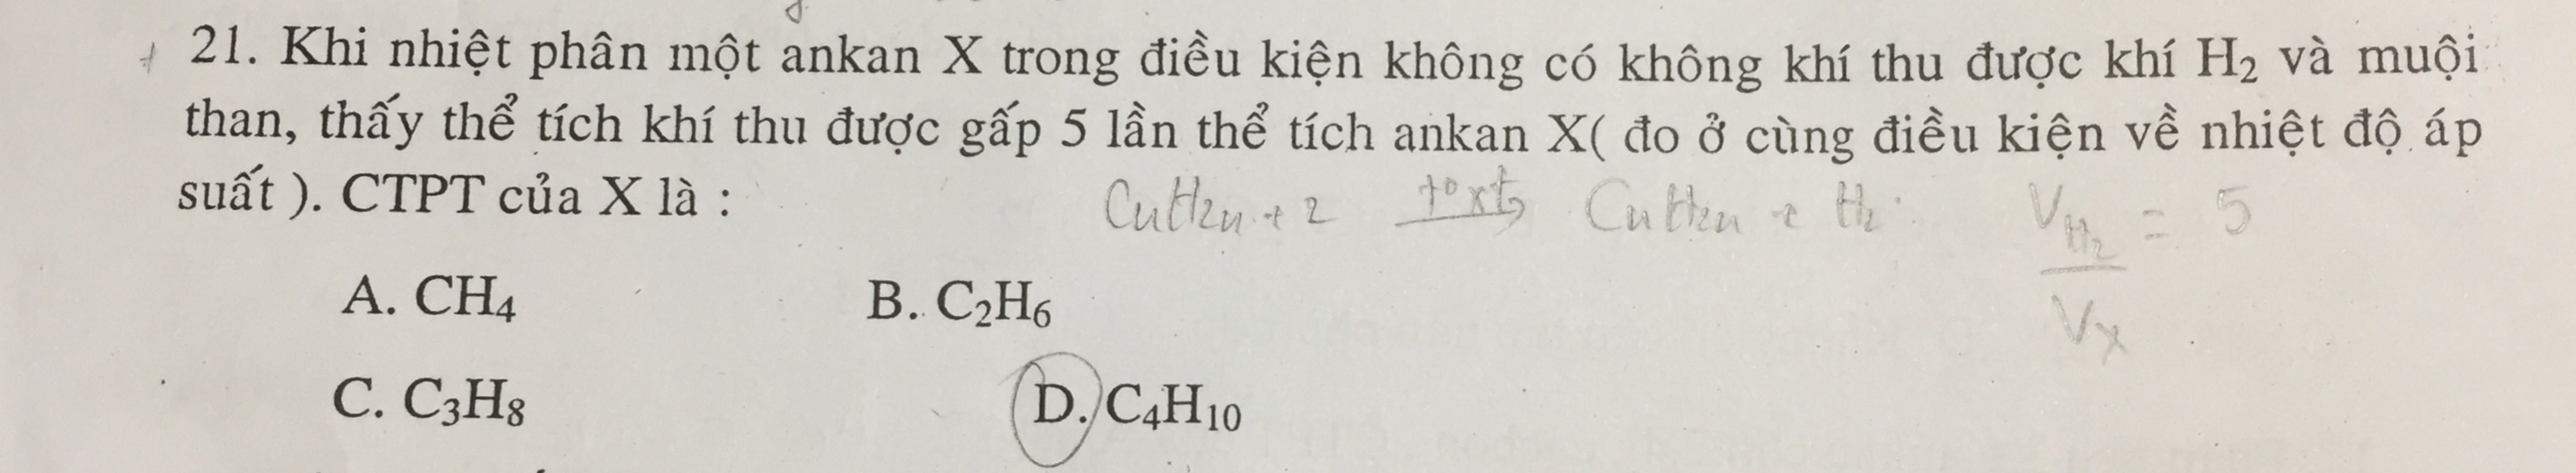 21. Khi nhiệt phân một ankan X trong điều kiện không có không khí thu được khí H₂ và muội
than, thấy thể tích khí thu được gấp 5 lần thể tích ankan X( đo ở cùng điều kiện về nhiệt độ áp
suất ). CTPT của X là :
CnH2n+2 t° xt → CnH2n + H₂. V_H₂ / V_X = 5
A. CH₄ B. C₂H₆
C. C₃H₈ D. C₄H₁₀